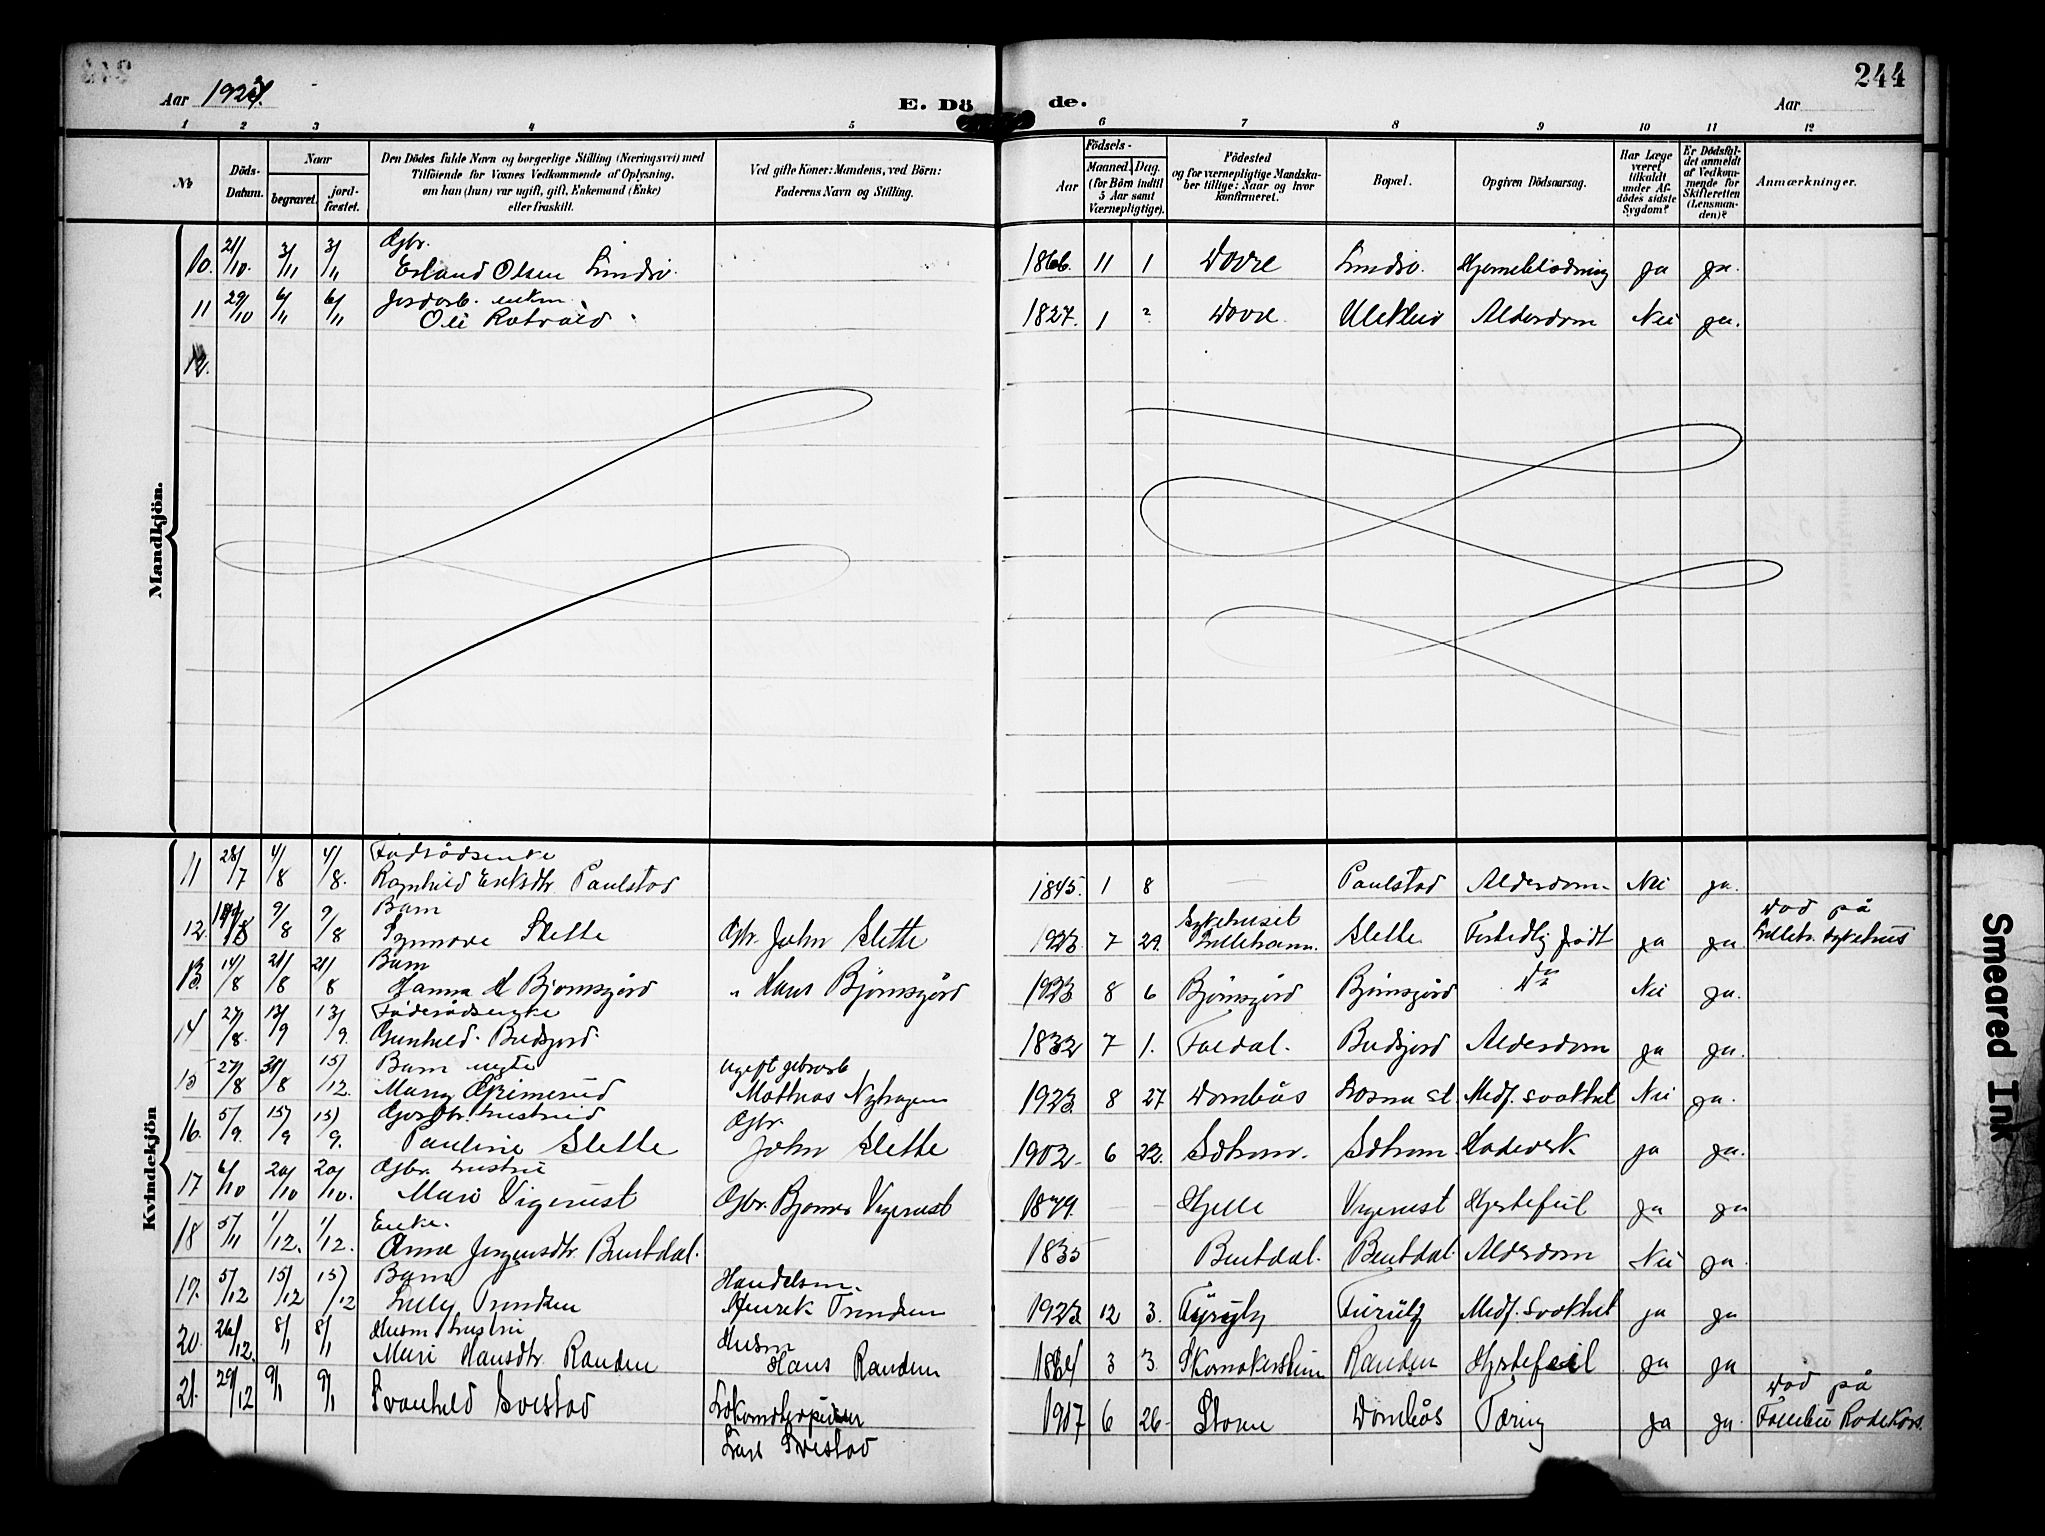 244
Aar 1923.
E. Dö
de.
Aar
1 2 3 4 5 6 7 8 9 10 11 12
No
Döds-
Datum.
Naar
begravet.
jord-
fæstet.
Den Dödes fulde Navn og borgerlige Stilling (Næringsvei) med
Tilföiende for Voxnes Vedkommende af Oplysning,
om han (hun) var ugift, gift, Enkemand (Enke)
eller fraskilt.
Ved gifte Koner: Mandens, ved Börn:
Faderens Navn og Stilling.
Födsels-
Aar
Maaned.
Dag.
(for Börn indtil
5 Aar samt
Værnepligtige).
Födested
og for værnepligtige Mandska-
ber tillige: Naar og hvor
konfirmeret.
Bopæl.
Opgiven Dödsaarsag.
Har Læge
været
tilkaldt
under Af-
dödes sidste
Sygdom?
Er Dödsfal-
det anmeldt
af Vedkom-
mende for
Skifteretten
(Lensman-
den)?
Anmærkninger.
Mandkjön.
Gbr.
10. 21/10. 3/11 3/11 Erland Olsen Lindsø. 1866. 11 1 Dovre Lindsø. Hjerneblødning ja ja.
Jordarb. enkm.
11 29/10 6/11 6/11 Ole Rotvold 1827. 1 2 Dovre. Alderdom Nei ja.
12.
Kvindekjön
Føderådsenke
11 28/7 4/8 4/8. Ragnhild Eriksdtr Paulstad 1845. 1 8 — Paulstad Alderdom. Nei ja.
Barn
12. 9/8 9/8 Synnøve Slette Gbr. John Slette 1923 7 29. Sykehuset Lilleham. Slette. Fortidlig født ja ja Død på
Lilleh. sykehus
Barn
13. 14/8 21/8 21/8 Hanna H Bjørnsgård " Hans Bjørnsgård 1923 8 6 Bjørnsgård Bjørnsgård Do Nei ja.
Føderådsenke
14 27/8. 13/9 13/9. Gunhild Budsjord. 1832 7 1. Foldal. Budsjord Alderdom ja ja.
Barn uegte ugift gbrarb
15 27/8 31/8 15/12. Mary Grimerud Mathias Nyhagen 1923 8 27 Dombås Losna st. Medf. svakhet Nei ja.
Gbr. hustru Gbr.
16. 5/9. 15/9 15/9. Pauline Slette John Slette 1902 6 22. ja ja.
Gbr. hustru
17 6/10 20/10 20/10. Mari Vigerust Gbr. Bjørner Vigerust 1879. — — Hjelle Vigerust Hjertefeil ja ja
Enke.
18 5/11 1/12. 1/12. Anne Jørgensdtr. Bentdal. 1835 Bentdal. Bentdal. Alderdom Nei ja.
Barn Handelsm.
19. 5/12 15/12 15/12 Lilly Trondsen Henrik Trondsen 1923 12 3. Furuly Furuly Medf. svakhet ja ja
Husm. hustru Husm
20. 26/12. 8/1 8/1 Mari Hansdtr. Randen Hans Randen 1864 3 3. Skomakersteien Randen Hjertefeil ja ja
21. 29/12 9/1 9/1 Svanhild Svestad Lokomotivpusser
Lars Svestad 1907 6 26. Støren Dombås Tæring ja ja. Død på
Follebu Rødekors.
Smeared Ink